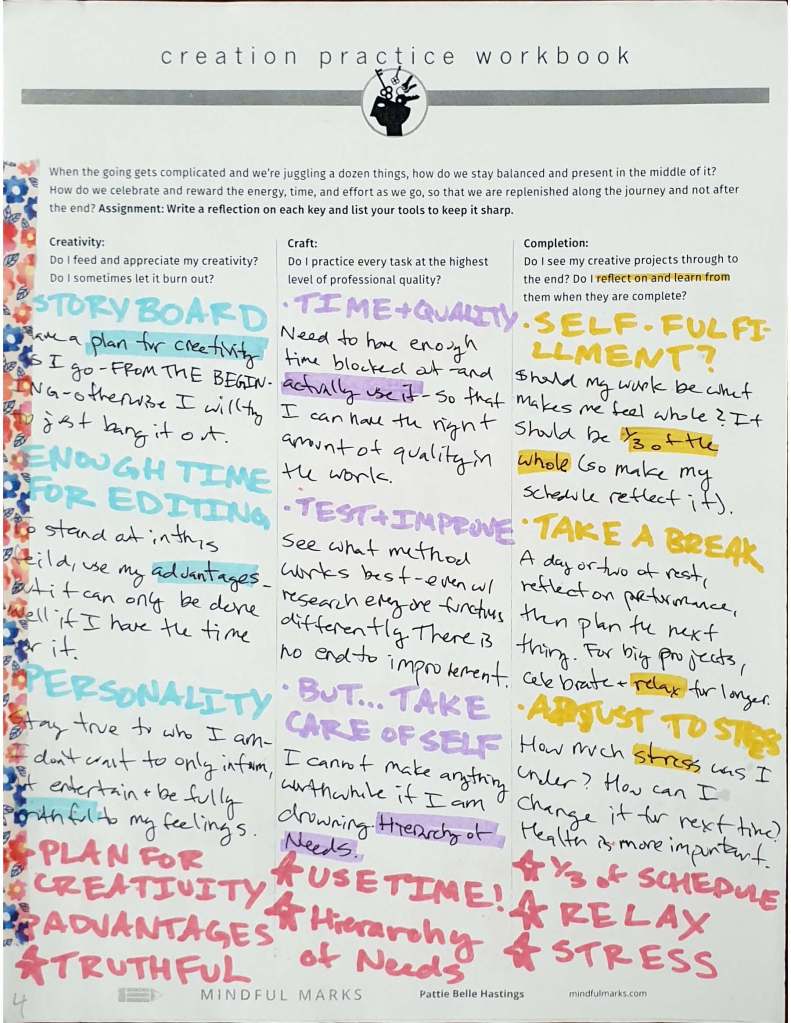 creation practice workbook
When the going gets complicated and we're juggling a dozen things, how do we stay balanced and present in the middle of it?
How do we celebrate and reward the energy, time, and effort as we go, so that we are replenished along the journey and not after
the end? Assignment: Write a reflection on each key and list your tools to keep it sharp.
Creativity:
Do I feed and appreciate my creativity?
Do I sometimes let it burn out?
STORYBOARD
a plan for creativity
I go - FROM THE BEGIN-
NG - otherwise I will try
just bang it out.
ENOUGH TIME
FOR EDITING
stand out in this
use my advantages -
it can only be done
well if I have the time
it.
PERSONALITY
Stay true to who I am -
don't want to only inform,
entertain + be fully
to my feelings.
PLAN FOR
CREATIVITY
ADVANTAGES
TRUTHFUL
Craft:
Do I practice every task at the highest
level of professional quality?
· TIME + QUALITY
Need to have enough
time blocked out - and
actually use it - so that
I can have the right
amount of quality in
the work.
· TEST + IMPROVE
See what method
works best - even w/
research everyone functions
differently. There is
no end to improvement.
· BUT... TAKE
CARE OF SELF
I cannot make anything
worthwhile if I am
drowning. Hierarchy of
Needs.
USE TIME!
Hierarchy
of Needs
Completion:
Do I see my creative projects through to
the end? Do I reflect on and learn from
them when they are complete?
· SELF-FULFI-
LLMENT?
Should my work be what
makes me feel whole? It
should be 1/3 of the
whole (so make my
schedule reflect it).
· TAKE A BREAK
A day or two of rest,
reflect on performance,
then plan the next
thing. For big projects,
celebrate + relax for longer.
· ADJUST TO STRESS
How much stress was I
under? How can I
change it for next time?
Health is more important.
1/3 of SCHEDULE
RELAX
STRESS
4
MINDFUL MARKS
Pattie Belle Hastings
mindfulmarks.com